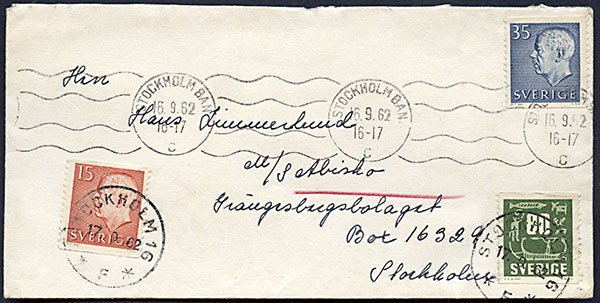 35
SVERIGE
STOCKHOLM BAN.
16.9.62
16-17
C
STOCKHOLM BAN.
16.9.62
16-17
C
16.9.62
16-17
C
Herr
Hans Zimmerlund
M/S Abisko
Grängesbergsbolaget
Box 16329
Stockholm
15
SVERIGE
STOCKHOLM 16
17.9.62
* F *
SVERIGE